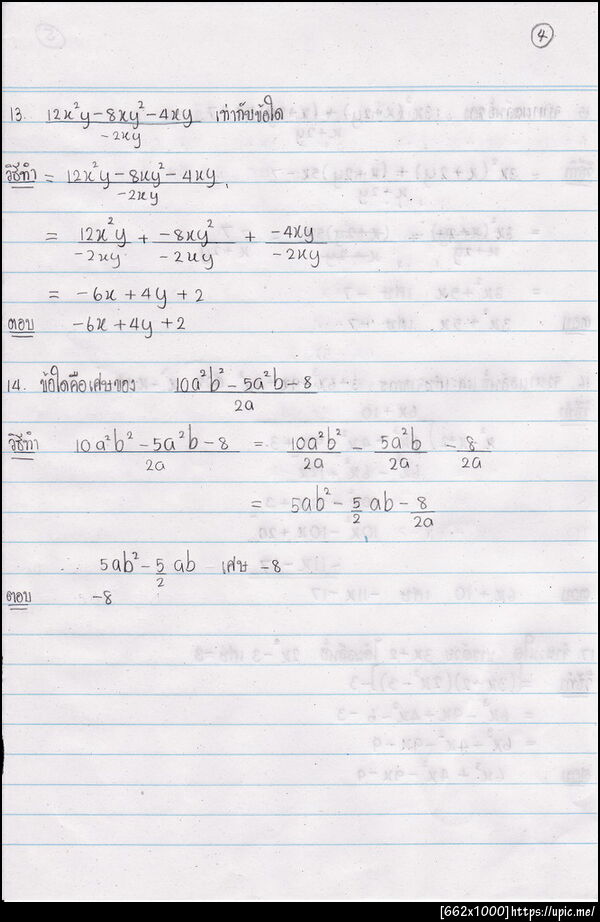 4
13. 12x²y - 8xy² - 4xy / -2xy เท่ากับข้อใด
วิธีทำ = 12x²y - 8xy² - 4xy / -2xy
= 12x²y / -2xy + -8xy² / -2xy + -4xy / -2xy
= -6x + 4y + 2
ตอบ -6x + 4y + 2
14. ข้อใดคือเศษของ 10a²b² - 5a²b - 8 / 2a
วิธีทำ 10a²b² - 5a²b - 8 / 2a = 10a²b² / 2a - 5a²b / 2a - 8 / 2a
= 5ab² - 5/2 ab - 8/2a
5ab² - 5/2 ab เศษ -8
ตอบ -8
[662x1000]https://upic.me/